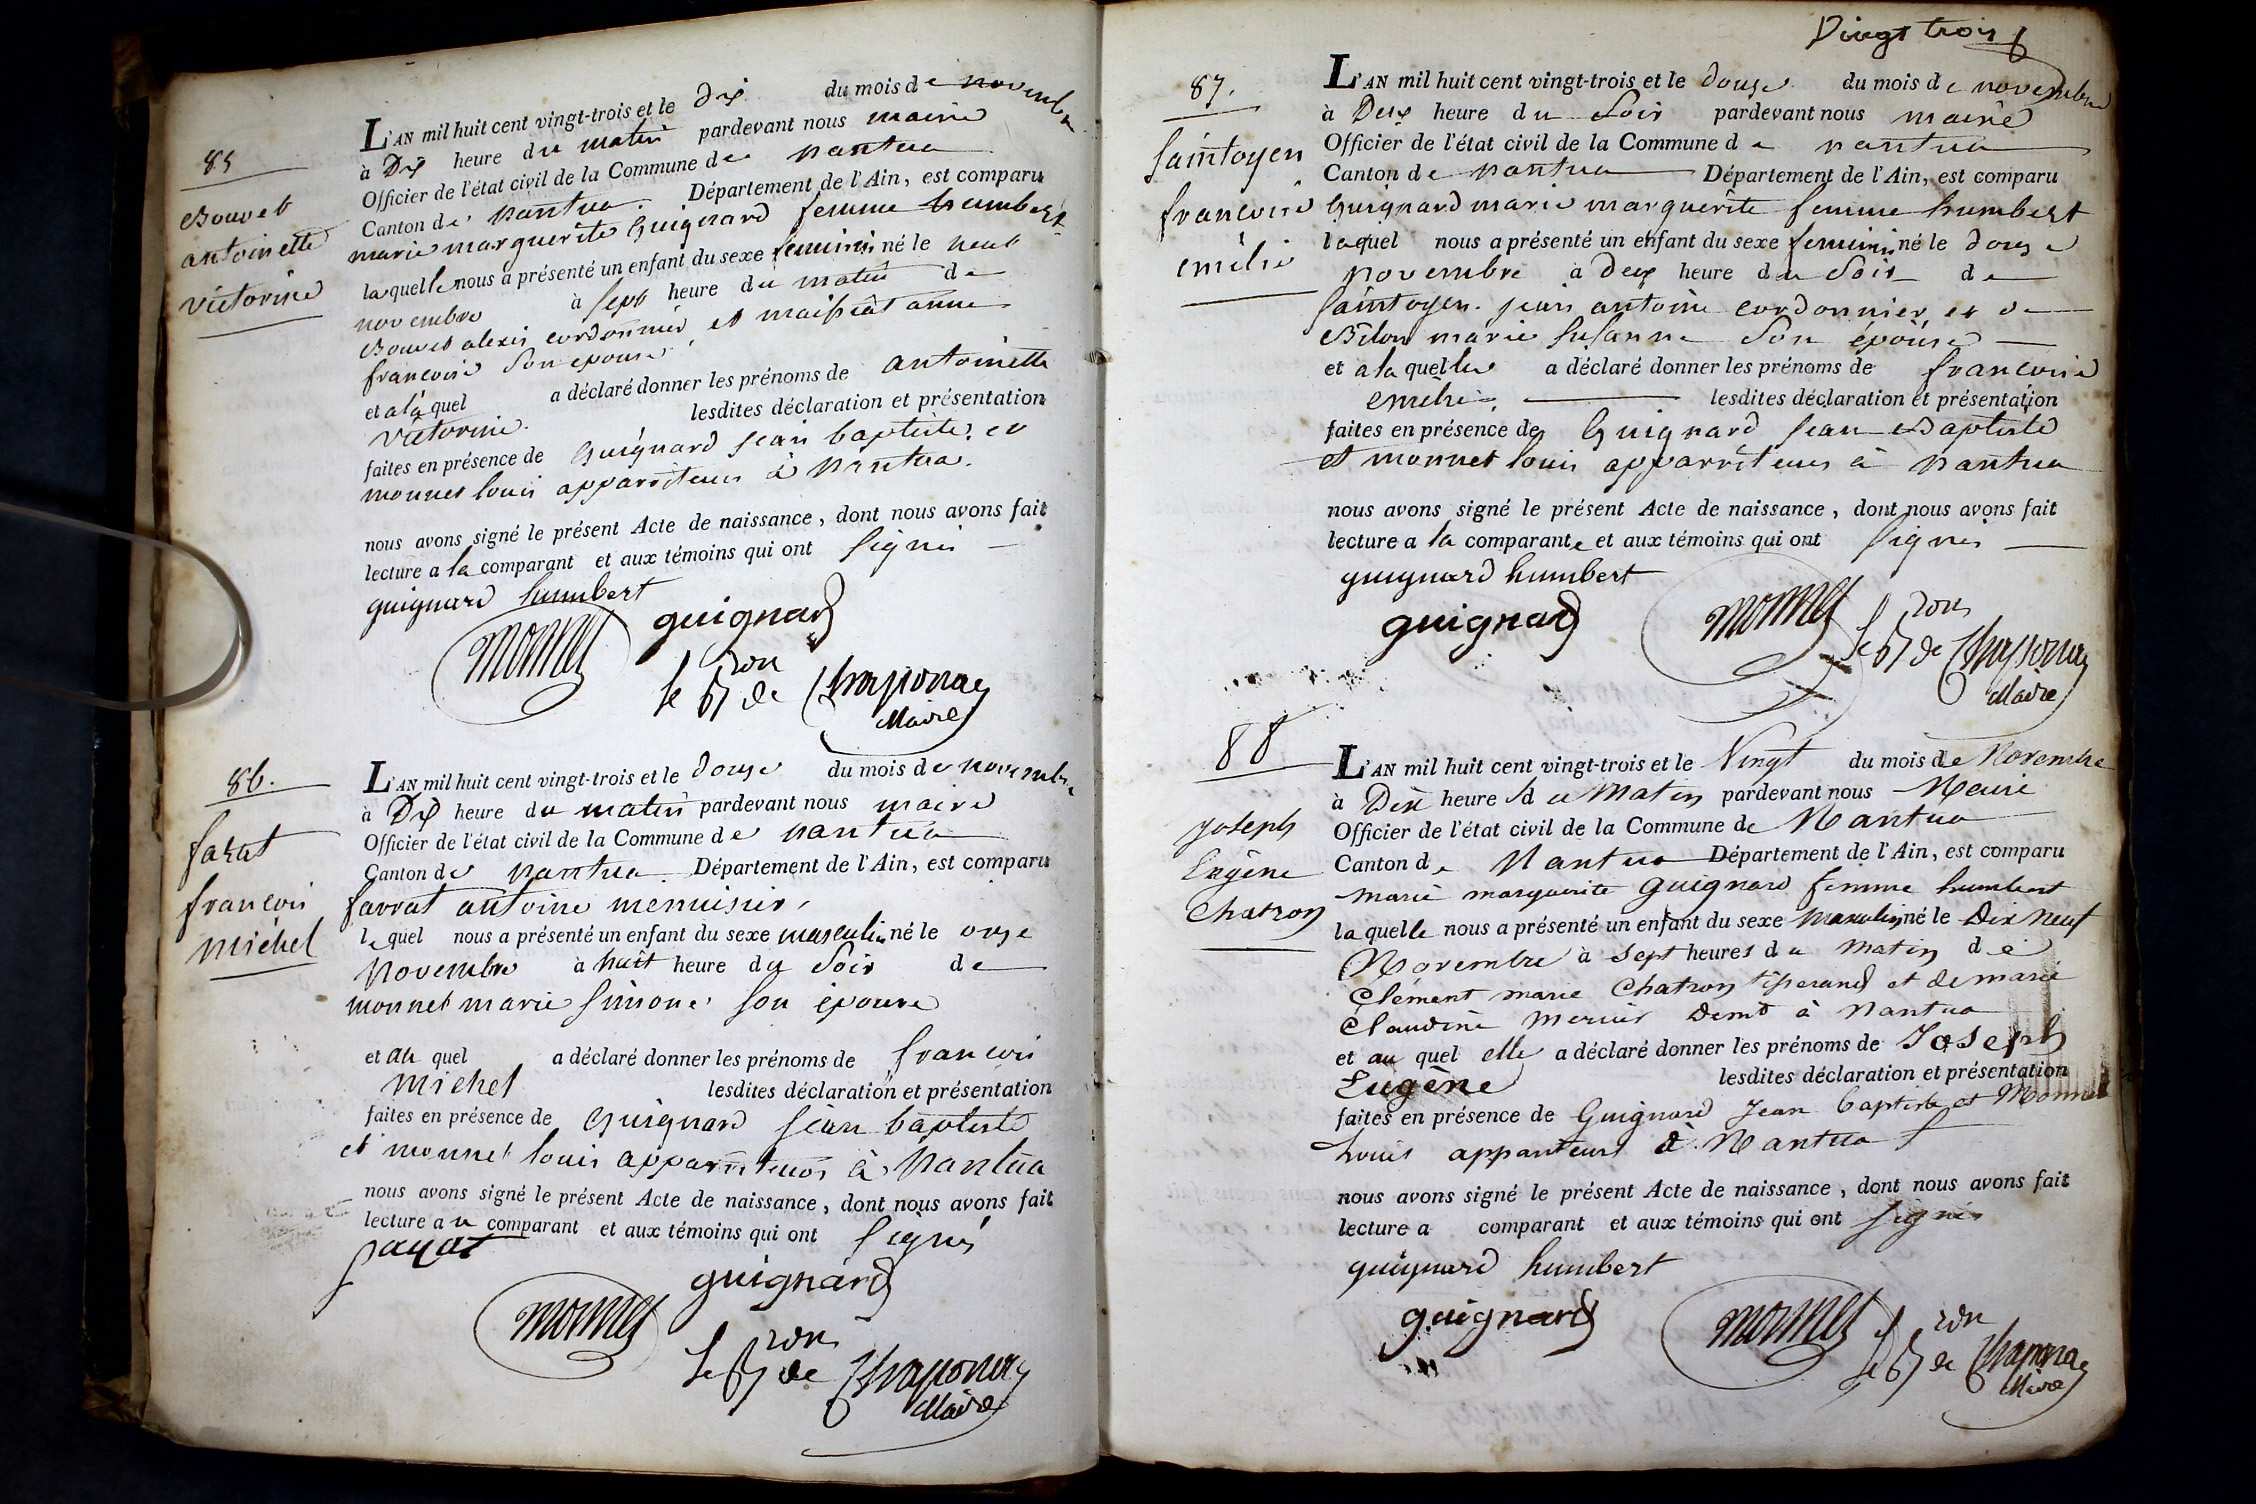 85
Bouvet
antoinette
victorine
L'AN mil huit cent vingt-trois et le dix du mois de novembre
à Dix heure du matin pardevant nous maire
Officier de l'état civil de la Commune de nantua
Canton de nantua Département de l'Ain, est comparu
marie marguerite Guignard femme humbert
laquelle nous a présenté un enfant du sexe féminin né le neuf
novembre à sept heure du matin de
Bouvet alexis cordonnier et maissiat anne
francoise son epouse
et a la quel a déclaré donner les prénoms de antoinette
victorine. lesdites déclaration et présentation
faites en présence de Guignard jean baptiste et
monnet louis apparriteurs à nantua.
nous avons signé le présent Acte de naissance, dont nous avons fait
lecture a la comparant et aux témoins qui ont signés
guignard humbert
monnet guignard
le Bron de Chaponay
Maire
86.
farat
francois
michel
L'AN mil huit cent vingt-trois et le douze du mois de novembre
à Dix heure du matin pardevant nous maire
Officier de l'état civil de la Commune de nantua
Canton de nantua Département de l'Ain, est comparu
favrat antoine menuisier,
lequel nous a présenté un enfant du sexe masculin né le onze
novembre à huit heure du soir de
monnet marie simone son épouse
et au quel a déclaré donner les prénoms de francois
michel lesdites déclaration et présentation
faites en présence de Guignard jean baptiste
et monnet louis apparriteurs à nantua
nous avons signé le présent Acte de naissance, dont nous avons fait
lecture au comparant et aux témoins qui ont signés
guignard
monnet
le Bron de Chaponay
Maire
Vingt trois
87.
saintoyen
francoise
emélie
L'AN mil huit cent vingt-trois et le douze du mois de novembre
à Deux heure du soir pardevant nous maire
Officier de l'état civil de la Commune de nantua
Canton de nantua Département de l'Ain, est comparu
Guignard marie marguerite femme humbert
laquel nous a présenté un enfant du sexe feminin né le douze
novembre à deux heure du soir de
saintoyen jean antoine cordonnier et de
marie susanne son épouse
et a la quelle a déclaré donner les prénoms de francoise
emélie, lesdites déclaration et présentation
faites en présence de Guignard jean Baptiste
et monnet louis apparriteurs à nantua
nous avons signé le présent Acte de naissance, dont nous avons fait
lecture a la comparante et aux témoins qui ont signés
guignard humbert
guignard monnet
le Bron de Chaponay
Maire
88
joseph
Eugène
Chatron
L'AN mil huit cent vingt-trois et le Vingt du mois de Novembre
à Dix heure du Matin pardevant nous Maire
Officier de l'état civil de la Commune de Nantua
Canton de Nantua Département de l'Ain, est comparu
marie marguerite guignard femme humbert
laquelle nous a présenté un enfant du sexe masculin né le Dix neuf
Novembre à sept heures du Matin de
Clément marie Chatron tisserand et de marie
Claudine Mercier demt à Nantua
et au quel elle a déclaré donner les prénoms de Joseph
Eugène lesdites déclaration et présentation
faites en présence de Guignard Jean baptiste et Monnet
Louis appariteurs à Nantua
nous avons signé le présent Acte de naissance, dont nous avons fait
lecture a comparant et aux témoins qui ont signés
guignard humbert
guignard monnet
le Bron de Chaponay
Maire